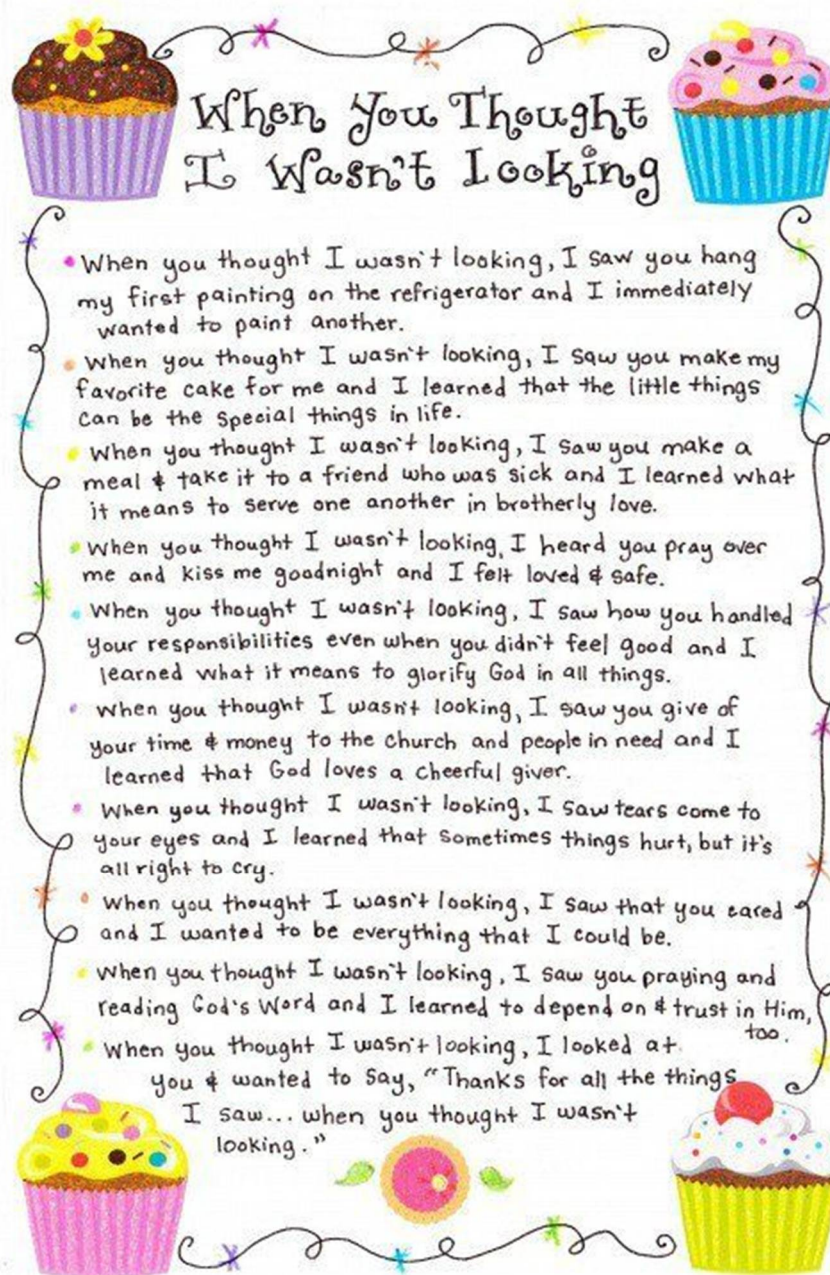 When You Thought
I Wasn't Looking
When you thought I wasn't looking, I saw you hang
my first painting on the refrigerator and I immediately
wanted to paint another.
When you thought I wasn't looking, I saw you make my
favorite cake for me and I learned that the little things
can be the special things in life.
When you thought I wasn't looking, I saw you make a
meal & take it to a friend who was sick and I learned what
it means to serve one another in brotherly love.
When you thought I wasn't looking, I heard you pray over
me and kiss me goodnight and I felt loved & safe.
When you thought I wasn't looking, I saw how you handled
your responsibilities even when you didn't feel good and I
learned what it means to glorify God in all things.
When you thought I wasn't looking, I saw you give of
your time & money to the church and people in need and I
learned that God loves a cheerful giver.
When you thought I wasn't looking, I saw tears come to
your eyes and I learned that sometimes things hurt, but it's
all right to cry.
When you thought I wasn't looking, I saw that you cared
and I wanted to be everything that I could be.
When you thought I wasn't looking, I saw you praying and
reading God's Word and I learned to depend on & trust in Him,
too.
When you thought I wasn't looking, I looked at
you & wanted to say, "Thanks for all the things
I saw... when you thought I wasn't
looking."